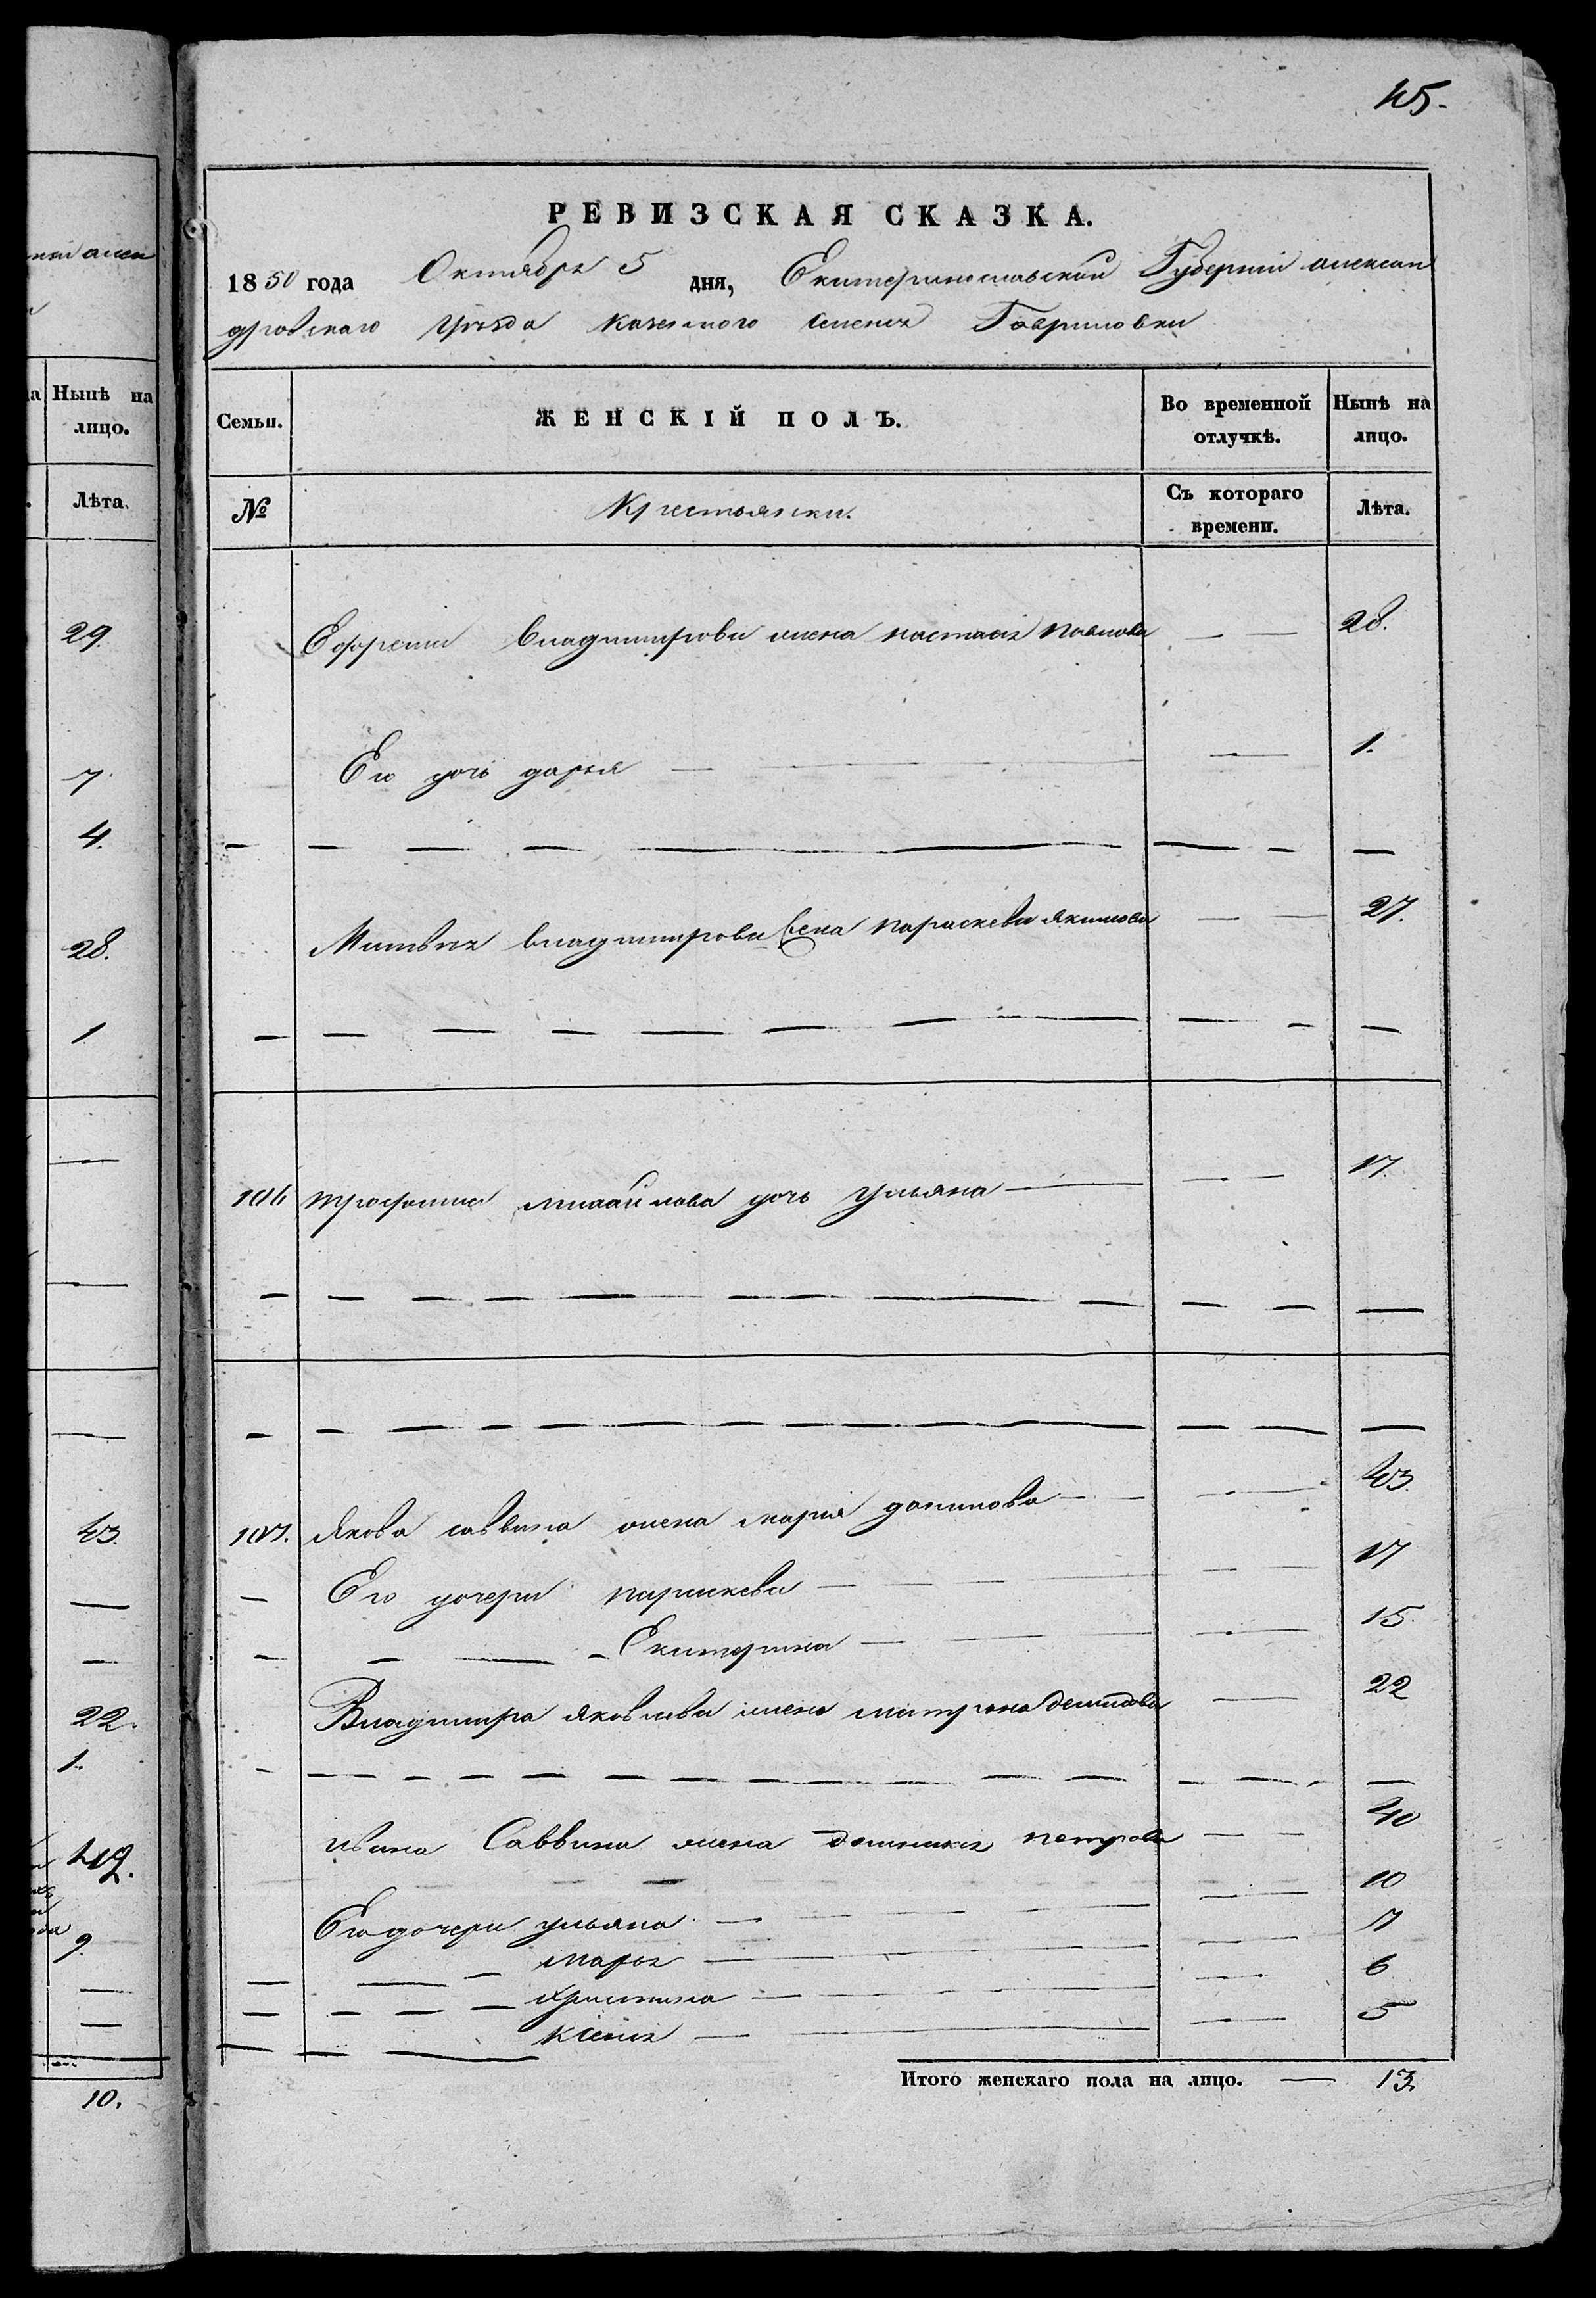 45.
РЕВИЗСКАЯ СКАЗКА.
1850 года Октября 5 дня, Екатеринославской Губерніи александ
дровскаго уѣзда казенного селенія Гавриловки
Семьи. ЖЕНСКІЙ ПОЛЪ. Во временной отлучкѣ. Нынѣ на лицо.
№ Крестьянки. Съ котораго времени. Лѣта.
Ефрема владимирова жена настасія павлова — — 28.
Его дочь дарья — — 1.
Матвея владимирова жена параскева якимова — — 27.
106 трофима михайлова дочь ульяна — — 17.
107. Якова саввина жена марія данилова — — 43.
Его дочери параскева — — 17
Екатерина — — 15.
Владимира яковлева жена матрона демидова — 22
ивана Саввина жена домникія петрова — — 40
Его дочери ульяна — — 10
марья — — 7
христина — — 6
ксенія — — 5
Итого женскаго пола на лицо. — 13.
Нынѣ на лицо.
Лѣта.
29.
7.
4.
28.
1
43.
22.
1.
9
10.